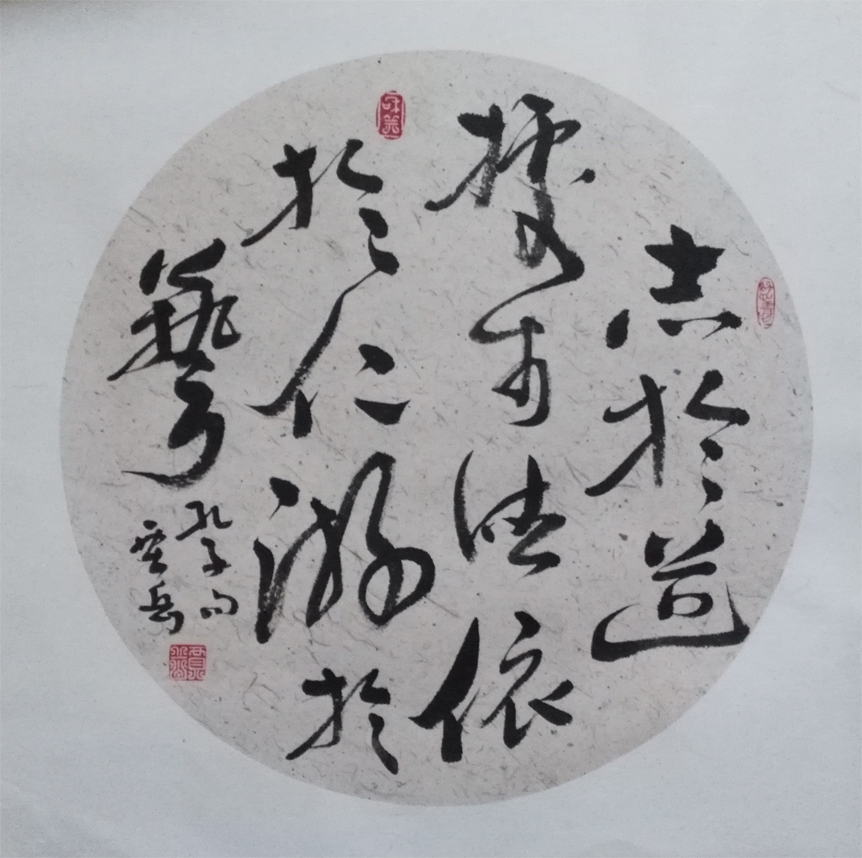 志於道
據於德依
於仁游於
藝
孔子句
岳